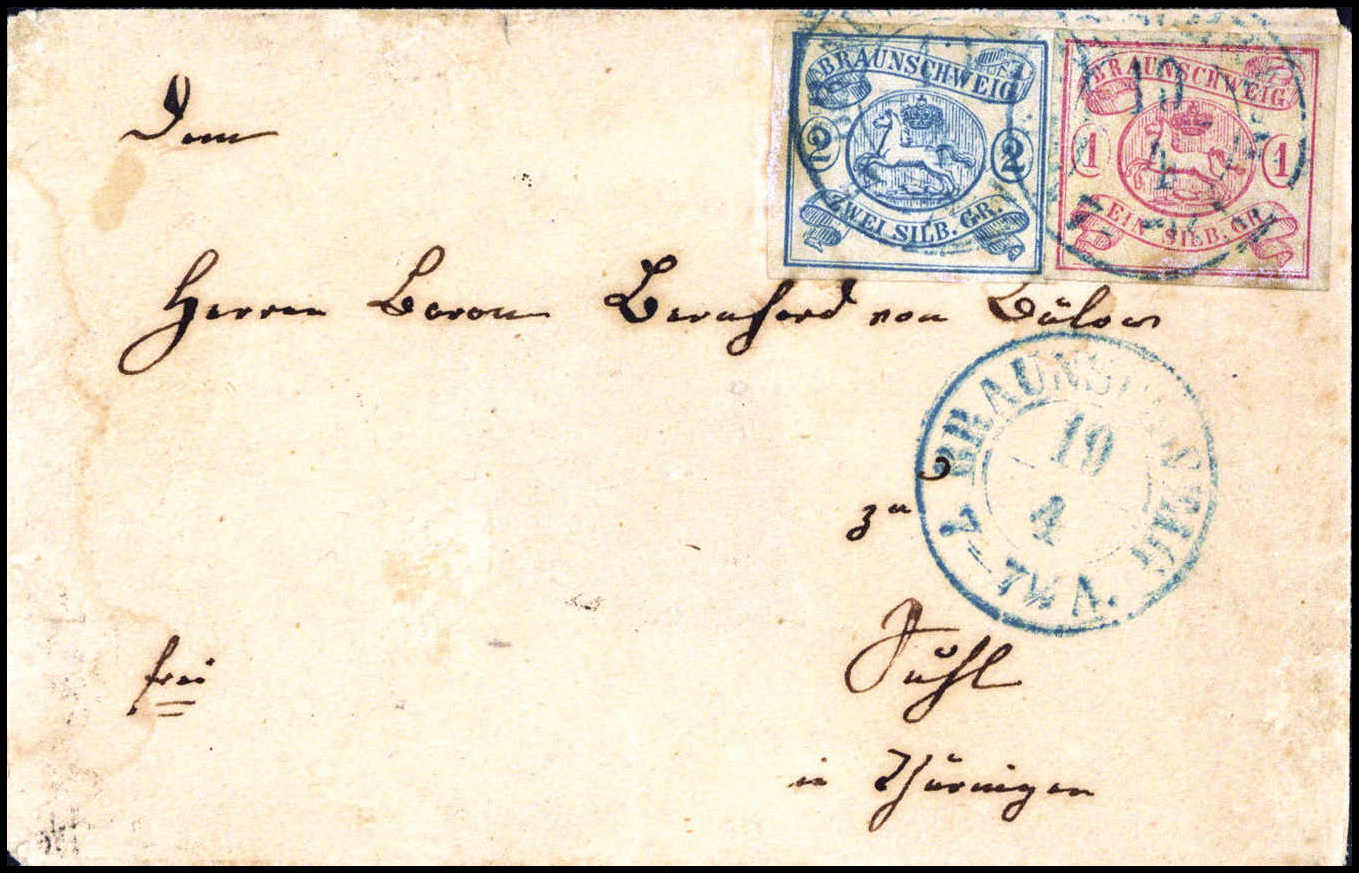 BRAUNSCHWEIG
2 2
ZWEI SILB. GR.
BRAUNSCHWEIG
1 1
EIN SILB. GR.
Dem
Herren Baron Bernhard von Bülow
BRAUNSCHWEIG
19
4
7-7½ V.
zu
Suhl
frei
in Thüringen